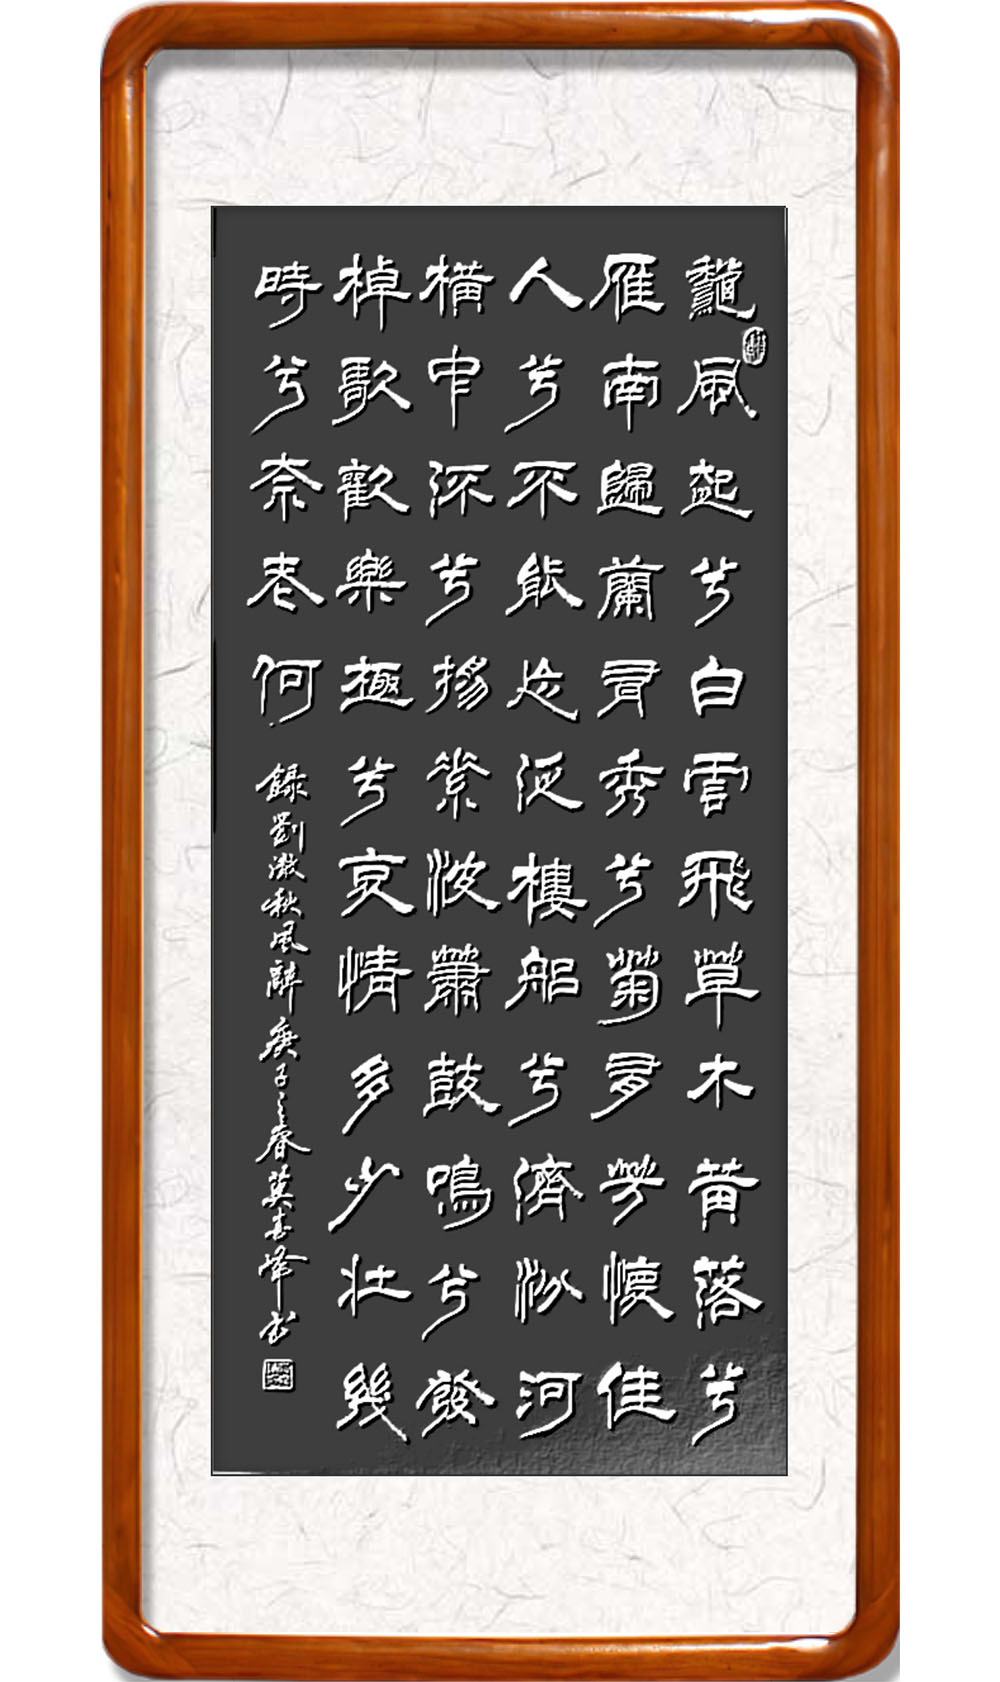 龝風起兮白雲飛草木黄落兮
雁南歸蘭有秀兮菊有芳懷佳
人兮不能忘泛樓船兮濟汾河
横中流兮揚素波蕭鼓鳴兮發
棹歌歡樂極兮哀情多少壯幾
時兮奈老何
錄劉澈秋風辭庚子之春莫志峰书